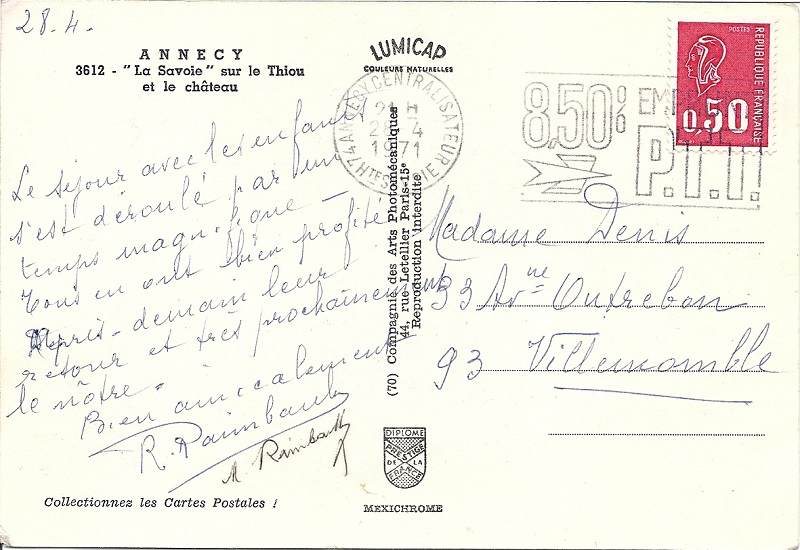 28.4.
ANNECY
3612 - "La Savoie" sur le Thiou
et le château
Le séjour avec les enfants
s'est déroulé par un
temps magnifique -
Tous en ont bien profité
Après-demain leur
retour et très prochainement
le nôtre.
Bien amicalement
R. Raimbault
M Rimbault
Collectionnez les Cartes Postales !
LUMICAP
COULEURS NATURELLES
(70) Compagnie des Arts Photomécaniques
44, rue Letellier Paris-15e
Reproduction interdite
DIPLOME
PRESTIGE
DE LA
FRANCE
MEXICHROME
74 ANNECY CENTRALISATEUR
Hte SAVOIE
21 H
4
1971
8,50%
P.T.T.
POSTES
REPUBLIQUE FRANÇAISE
0,50
Madame Denis
93 Avne Outrebon
93 Villemomble